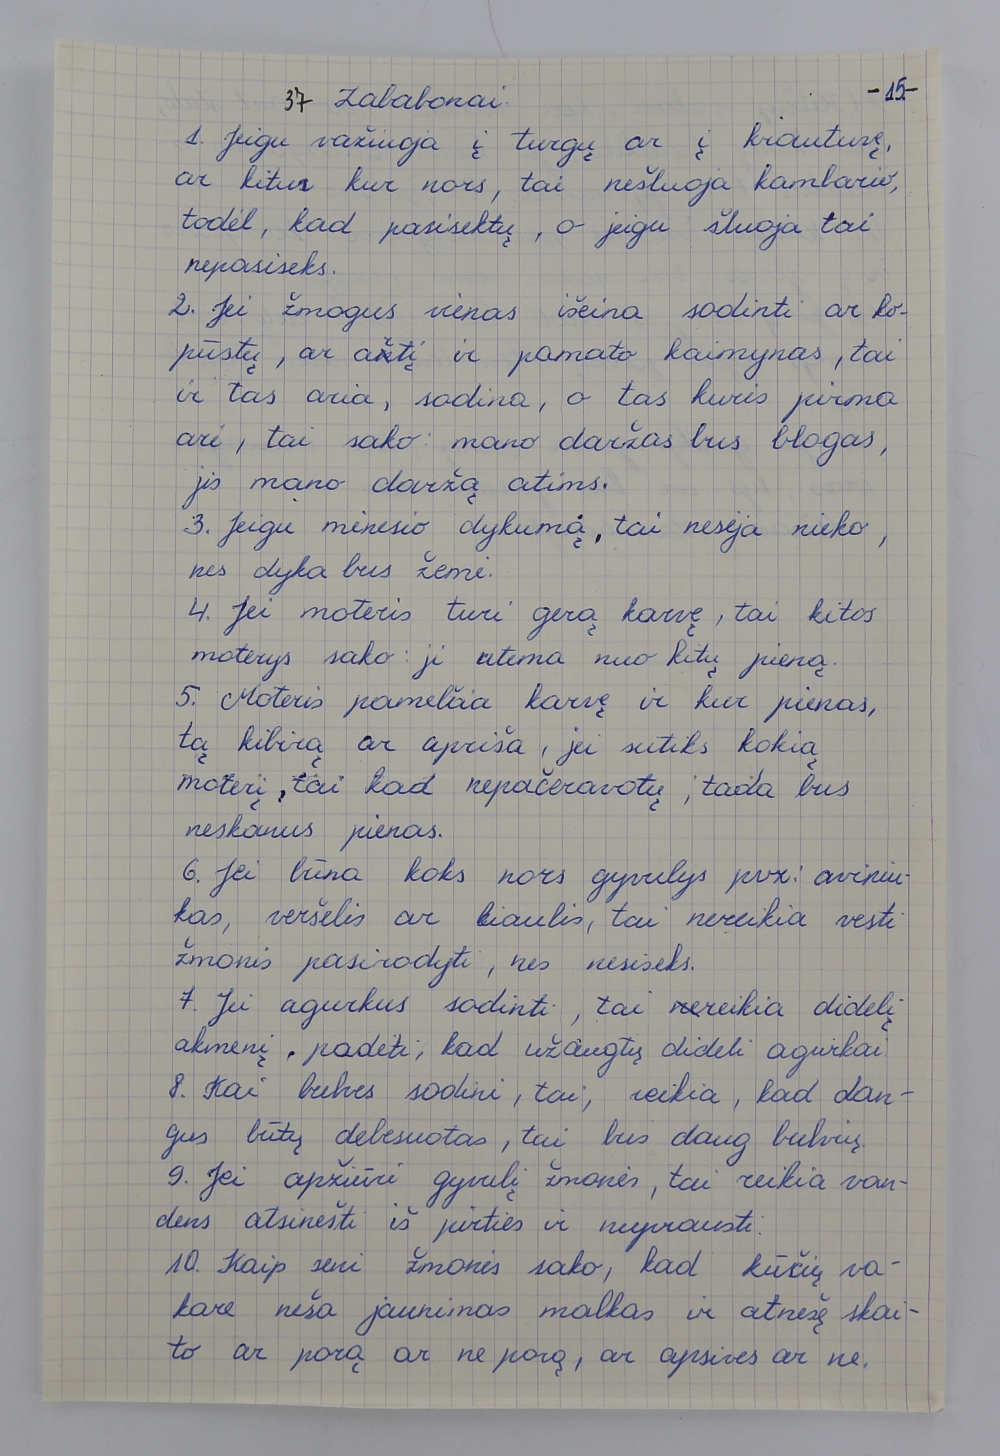 37 Zababonai.
-15-
1. Jeigu važiuoja į turgų ar į krautuvę,
ar kitur kur nors, tai nešluoja kambario,
todėl, kad pasisektų, o jeigu šluoja tai
nepasiseks.
2. Jei žmogus vienas išeina sodinti ar ko-
pūstų, ar arti ir pamato kaimynas, tai
ir tas aria, sodina, o tas kuris pirma
arė, tai sako: mano daržas bus blogas,
jis mano daržą atims.
3. Jeigu mėnesio dykumą, tai nesėja nieko,
nes dyka bus žemė.
4. Jei moteris turi gerą karvę, tai kitos
moterys sako: ji atema nuo kitų pieną.
5. Moteris pamelžia karvę ir kur pienas,
tą kibirą ar apriša, jei sutiks kokią
moterį, tai kad nepačeravotų, tada bus
neskanus pienas.
6. Jei būna koks nors gyvulys pvz: aviniu-
kas, veršelis ar kiaulis, tai nereikia vesti
žmonis pasirodyti, nes nesiseks.
7. Jei agurkus sodinti, tai reikia didelį
akmenį, padėti, kad užaugtų dideli agurkai.
8. Kai bulves sodini, tai, reikia, kad dan-
gus būtų debesuotas, tai bus daug bulvių.
9. Jei apžiūri gyvulį žmonės, tai reikia van-
dens atsinešti iš pirties ir nuprausti.
10. Kaip seni žmonės sako, kad kūčių va-
kare neša jaunimas malkas ir atnešę skai-
to ar porą ar ne porą, ar apsives ar ne.